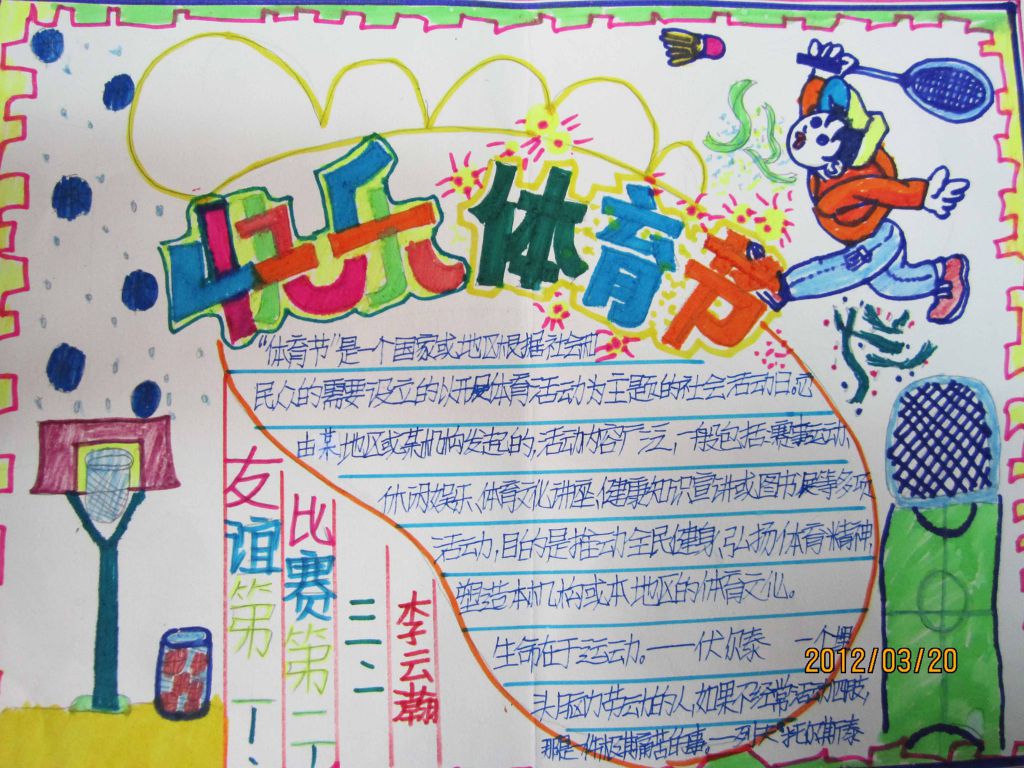 快乐体育节
“体育节”是一个国家或地区根据社会和
民众的需要设立的以开展体育活动为主题的社会活动日。也
由某地区或某机构发起的,活动内容广泛,一般包括:赛事运动、
休闲娱乐、体育文化讲座、健康知识宣讲或图书展等多项
活动,目的是推动全民健身、弘扬体育精神,
塑造本机构或本地区的体育文化。
生命在于运动。——伏尔泰 一个埋
头脑力劳动的人,如果不经常活动四肢,
那是一件极其痛苦的事。——列夫·托尔斯泰
友谊第一、
比赛第二
三二、
李云瀚
2012/03/20